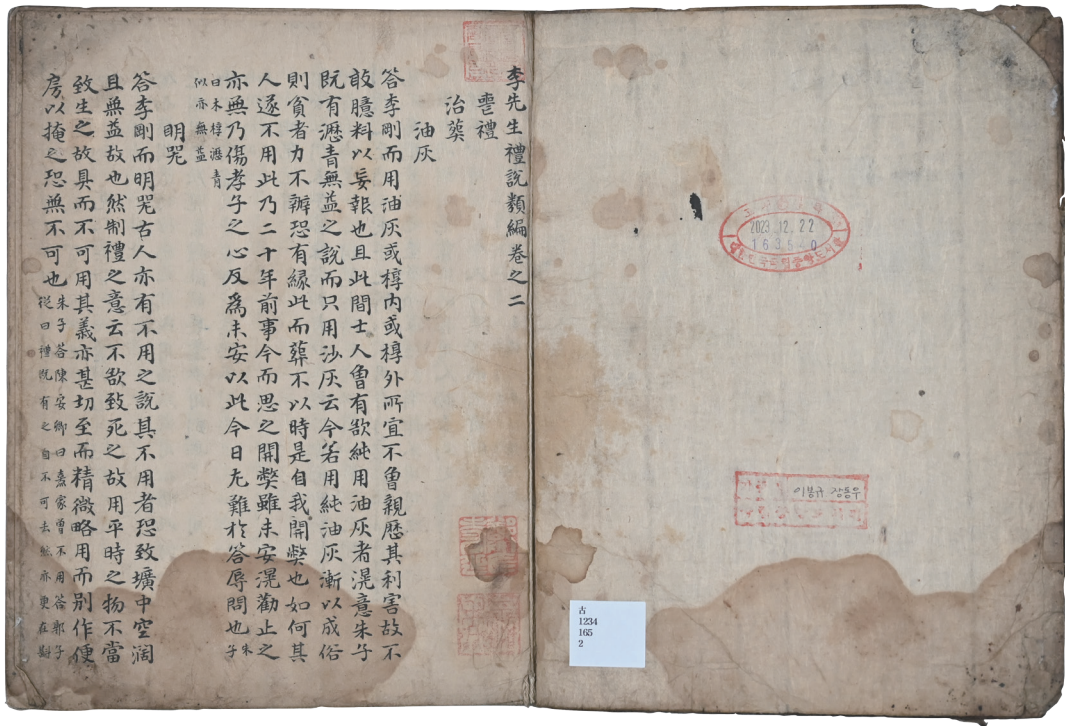 李先生禮說類編卷之二
喪禮
治葬
油灰
答李剛而用油灰或椁內或椁外所宜不曾親歷其利害故不
敢臆料以妄報也且此間士人曾有欲純用油灰者滉意朱子
既有瀝青無益之說而只用沙灰云今若用純油灰漸以成俗
則貧者力不辦恐有緣此而葬不以時是自我開弊也如何其
人遂不用此乃二十年前事今而思之開弊雖未安滉勸止之
亦無乃傷孝子之心反爲未安以此今日尤難於答辱問也朱子
曰木椁瀝青
似亦無益
明器
答李剛而明器古人亦有不用之說其不用者恐致壙中空濶
且無益故也然制禮之意云不欲致死之故用平時之物不當
致生之故具而不可用其義亦甚切至而精微略用而別作便
房以掩之恐無不可也朱子答陳安卿曰熹家曾不用答郭子
從曰禮既有之自不可去然亦更在斟
2023.12.22
163540
이봉규 장동우
古
1234
165
2